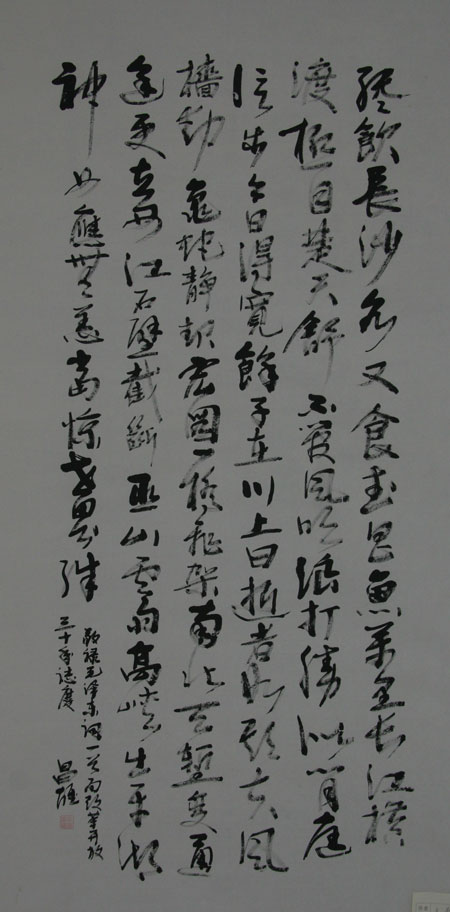 纔飲長沙水又食武昌魚萬里長江横
渡極目楚天舒不管風吹浪打勝似閒庭
信步今日得寬餘子在川上曰逝者如斯夫風
檣動龜蛇靜起宏圖一橋飛架南北天塹變通
途更立西江石壁截斷巫山雲雨高峽出平湖
神女應無恙當惊世界殊
敬録毛澤東詞一首為改革开放
三十年誌慶
昌雄